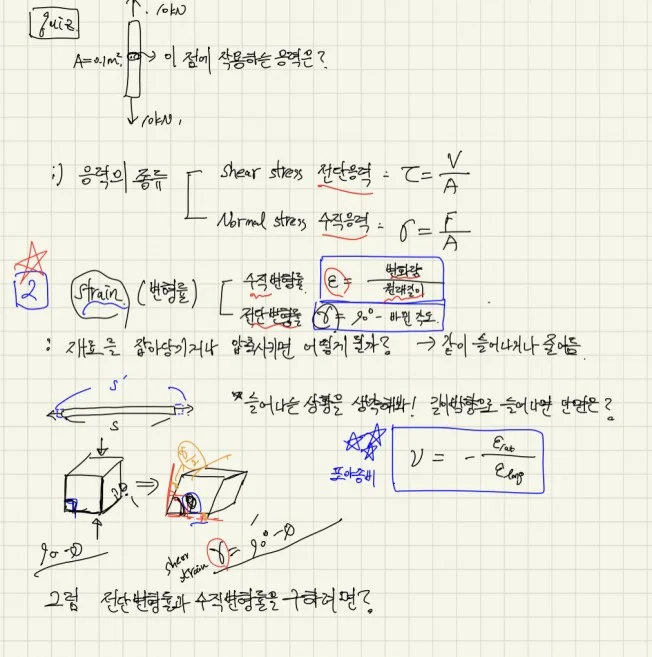 quiz
10kN
A=0.1m².
이 점에 작용하는 응력은?
10kN.
i) 응력의 종류
shear stress 전단응력 : τ = V/A
Normal stress 수직응력 = σ = F/A
2 strain (변형률)
수직변형률 ε = 변화량/원래길이
전단변형률 γ = 90° - 바뀐 각도.
: 재료를 잡아당기거나 압축시키면 어떻게 될까? → 같이 늘어나거나 줄어듬
S'
S
* 늘어나는 상황을 생각해봐! 길이방향으로 늘어나면 단면은?
포아송비 ν = - ε_lat/ε_long
90-θ
shear strain γ = 90° - θ
그럼 전단변형률과 수직변형률을 구하려면?